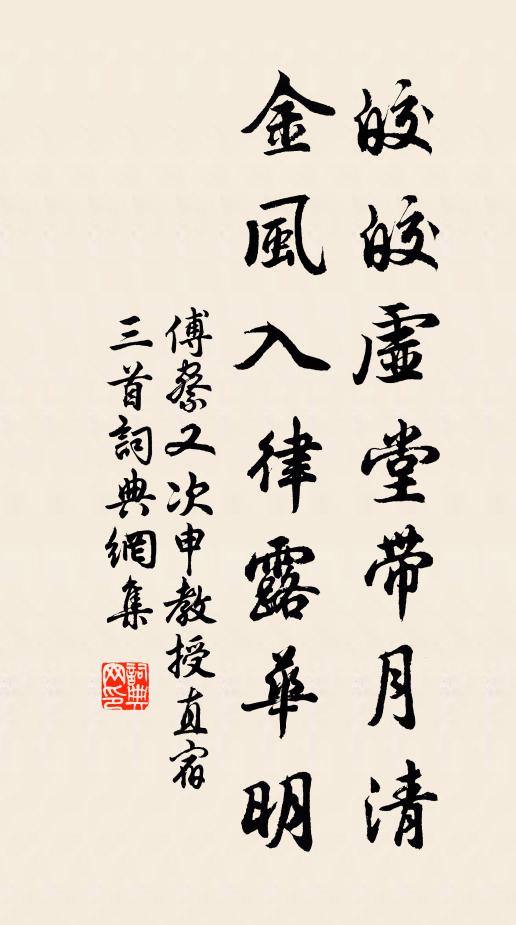 皎皎虛堂帶月清
金風入律露華明
傅察又次申教授直宿
三首詞典網集
詞典網印